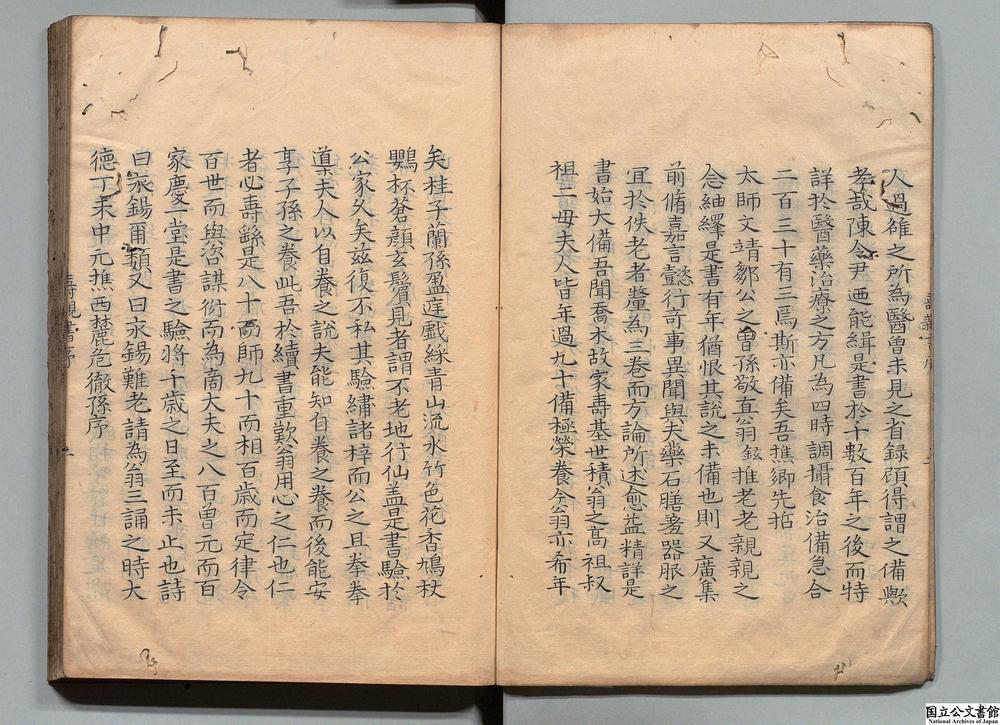 人過雒之所為醫曽未見之省録顧得謂之備歟
孝哉陳令尹廼能緝是書於千數百年之後而特
詳於醫藥治療之方凡為四時調攝食治備急合
二百三十有三焉斯亦備矣吾樵郷先㨿
太師文靖鄒公之曽孫敬直翁鉉推老老親親之
念紬繹是書有年猶恨其說之未備也則又廣集
前脩嘉言懿行竒事異聞與夫藥石膳羞器服之
宜於佚老者釐為三卷而方論所述愈益精詳是
書始大備吾聞喬木故家壽基世積翁之髙祖叔
祖二母夫人皆年過九十備極榮養今翁亦希年
矣桂子蘭孫盈庭戯綵青山流水竹色花香鳩杖
鸚杯蒼顔玄鬢見者謂不老地行仙盖是書驗於
公家久矣兹復不私其驗繡諸梓而公之且拳拳
導夫人以自養之說夫能知自養之養而後能安
享子孫之養此吾於續書重歎翁用心之仁也仁
者必壽繇是八十而師九十而相百歳而定律令
百世而與咨謀衎而為商大夫之八百曽元而百
家慶一堂是書之驗將千歳之日至而未止也詩
曰永錫爾類又曰永錫難老請為翁三誦之時大
德丁未中元樵西麓危徹孫序
壽親書序
国立公文書館
National Archives of Japan